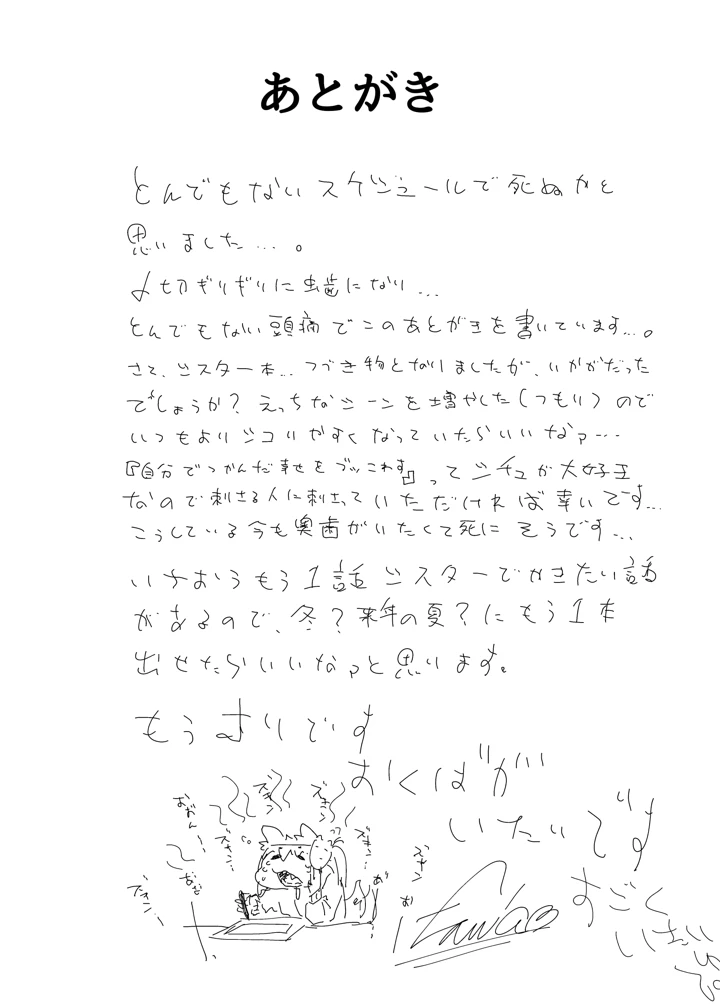 あとがき
とんでもないスケジュールで死ぬかと
思いました…。
〆切ぎりぎりに虫歯になり…
とんでもない頭痛でこのあとがきを書いています…。
さて、シスター本… つづき物となりましたが、いかがだった
でしょうか？えっちなシーンを増やした(つもり)ので
いつもよりシコりやすくなっていたらいいなァ…
『自分でつかんだ幸せをブッこわす』ってシチュが大好き
なので刺さる人に刺さっていただければ幸いです…
こうしている今も奥歯がいたくて死にそうです…
いちおうもう1話シスターでかきたい話
があるので、冬？来年の夏？にもう1本
出せたらいいなァと思います。
もうムリです
おくばが
いたいです
すごく
いたい
ズキン
ズキン
ズキン…
ズキン…
ズキン
ズキン…
おおん…
おお
あ
お